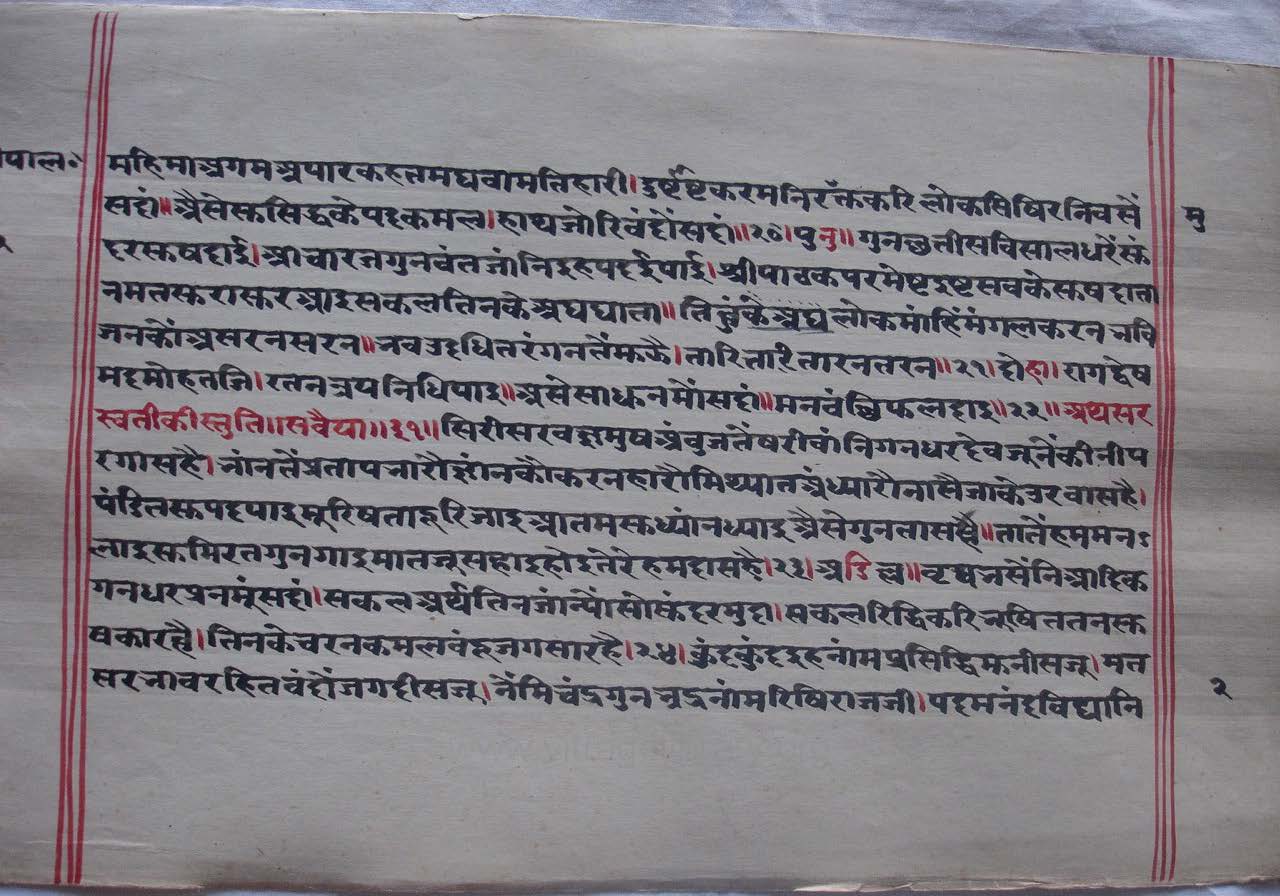 पाल॰ महिमाअगमअपारकहतमघवामतिहारी।दुष्टष्टकरमनिरमुक्तकरिलोकसिषिरनिवसें
सहां॥अैसेसुसिद्धकेपदकमल।हाथजोरिवंदौंसदां॥२०।पुनु॥गुनछत्तीसविसालधरेंसं मु
दरसुषदाई।आचारजगुनवंतजांनिइहपदईपाई।श्रीपाठकपरमेष्टइष्टसवकेसुषदाता
नमतसुरासुरआइसकलतिनकेअघघाता॥तिहुंकेअघलोकमांहिमंगलकरनभवि
जनकौंअसरनसरन॥भवउदधितरंगनतें।तारितारितारनतरन॥२१।दोहा।रागद्वेष
मदमोहतजि।रतनत्रयनिधिपाइ॥अैसेसाधनमौंसदां॥मनवंछिफलदाइ॥२२॥अथसर
स्वतीकीस्तुति॥सवैया॥३१॥सिरीसरवज्ञमुषअंवुजतेंषरीवांनिगनधरदेवजूनेंकीनीप
रगासहै।भांनतेंप्रतापभारौग्यांनकौकरनहारौमिथ्यातअंध्यारौनासैजाकेउरवासहै।
पंडितसुपदपाइमूरिषताहरिजाइआतमसुध्यांनध्याइअैसेगुनतासहै॥तातेंहममन
लाइसुमिरतगुनगाइमातजूसहाइहोइतेरेहमदासहै।२३।अडिल्ल॥वृषभसेंनिआदिक
गनधरप्रनमूंसदां।सकलअर्थतिनजांन्यौंसोसुंदरमुदा।सकलरिद्धिकरिभूषिततनसु
षकारहै।तिनकेचरनकमलवंदूजगसारहै।२४।कुंदकुंदइहनांमप्रसिद्धिमुनीसजू।मत
सरभावरहितवंदौंजगदीसजू।नेंमिचंद्रगुनभद्रनांमरिषिराजजी।पदमनंदविद्यानि २